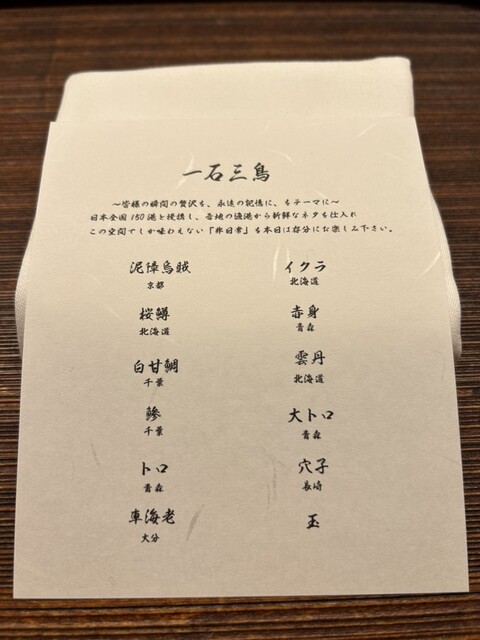 一石三鳥
～皆様の瞬間の贅沢を、永遠の記憶に、をテーマに～
日本全国150港と提携し、各地の漁港から新鮮なネタを仕入れ
この空間でしか味わえない「非日常」を本日は存分にお楽しみ下さい。
泥障烏賊
京都
桜鱒
北海道
白甘鯛
千葉
鯵
千葉
トロ
青森
車海老
大分
イクラ
北海道
赤身
青森
雲丹
北海道
大トロ
青森
穴子
長崎
玉